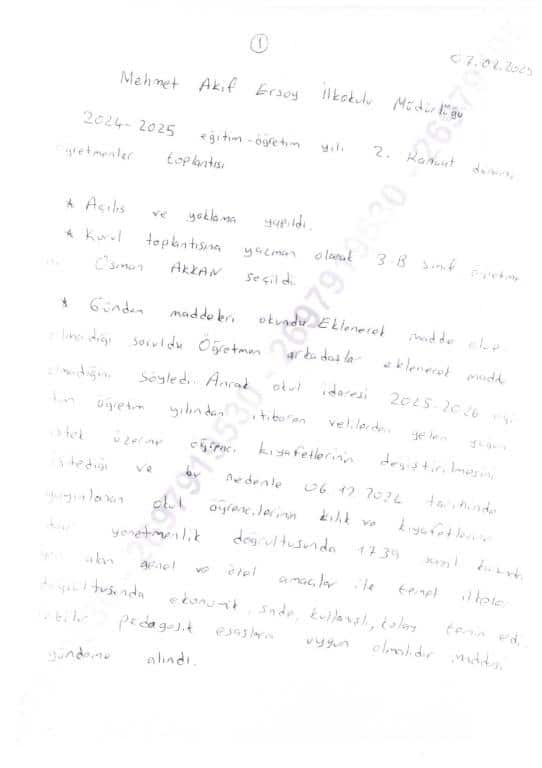 1
07.02.2025
Mehmet Akif Ersoy İlkokulu Müdürlüğü
2024-2025 eğitim-öğretim yılı 2. Kanaat dönemi
öğretmenler toplantısı
* Açılış ve yoklama yapıldı.
* Kurul toplantısına yazman olarak 3-B sınıf öğretme
ni Osman AKKAN seçildi.
* Gündem maddeleri okundu. Eklenecek madde olup
olmadığı soruldu Öğretmen arkadaşlar eklenecek madde
olmadığını söyledi. Ancak okul idaresi 2025-2026 eği
tim öğretim yılından itibaren velilerden gelen yoğun
istek üzerine öğrenci kıyafetlerinin değiştirilmesini
istediği ve bu nedenle 06.12.2024 tarihinde
yayınlanan okul öğrencilerinin kılık ve kıyafetlerine
dair yönetmenlik doğrultusunda 1739 sayılı kanunda
yer alan genel ve özel amaçlar ile temel ilkeler
doğrultusunda ekonomik, sade, kullanışlı, kolay temin edi
lebilir pedagojik esaslara uygun olmalıdır maddesi
gündeme alındı.
2697919530 - 2697919530 - 2697919530